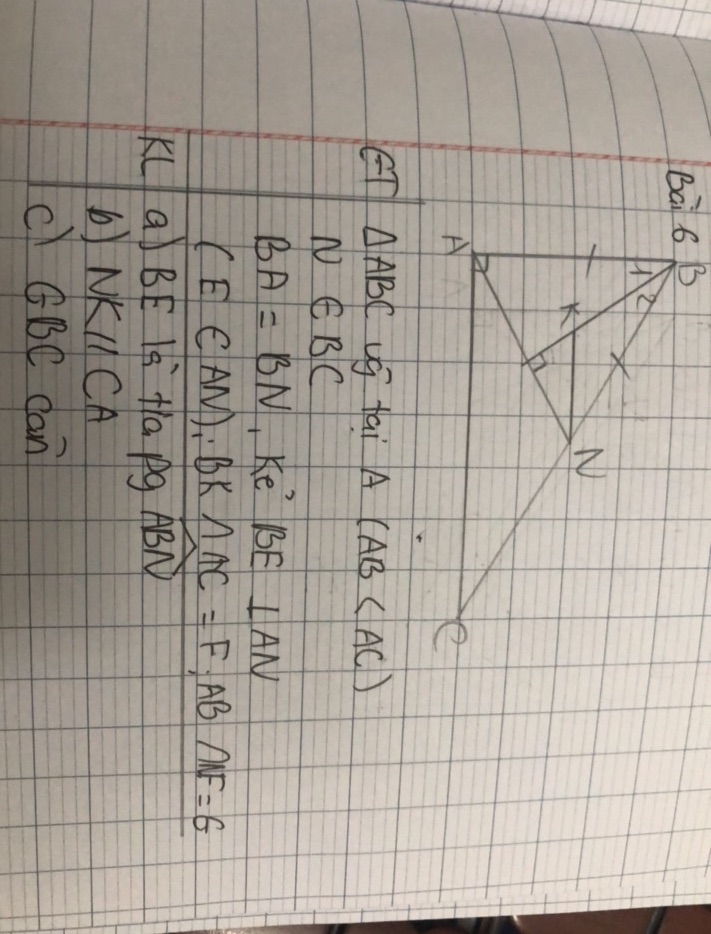 Bài 6
B
1 2
K
N
A
C
GT ΔABC vg tại A (AB < AC)
N ∈ BC
BA = BN, Kẻ BE ⊥ AN
(E ∈ AN), BK ∩ AC = F, AB ∩ NF = G
KL a) BE là tia pg ABN
b) NK // CA
c) GBC cân